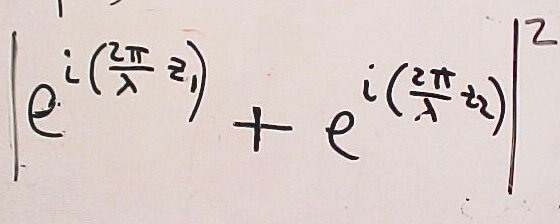 |e^{i(\frac{2π}{λ} z_1)} + e^{i(\frac{2π}{λ} z_2)}|^2